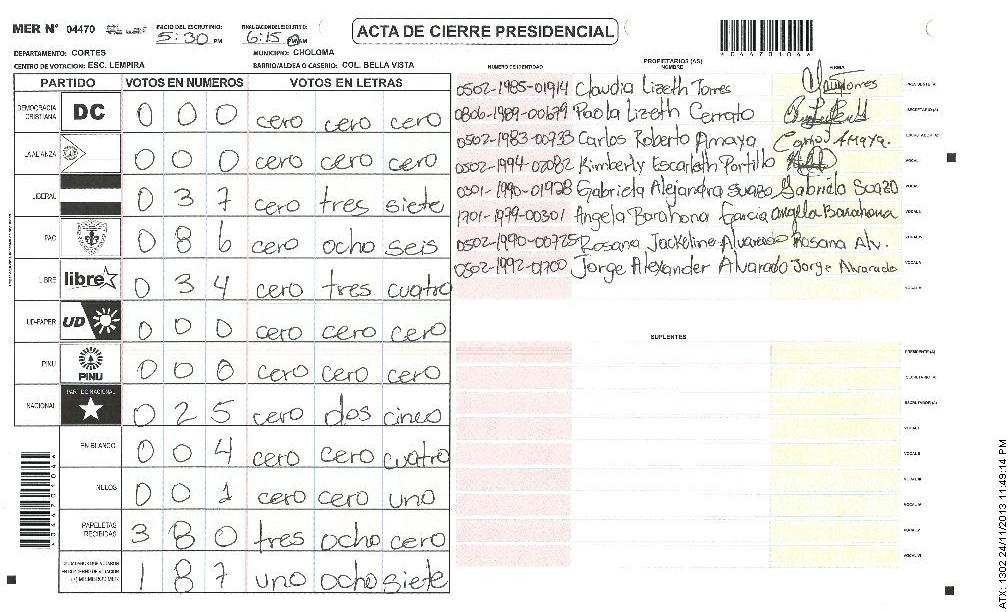 MER N° 04470
INICIO DEL ESCRUTINIO: 5:30 PM
FINALIZACION DEL ESCRUTINIO: 6:15 PM
ACTA DE CIERRE PRESIDENCIAL
DEPARTAMENTO: CORTES
MUNICIPIO: CHOLOMA
CENTRO DE VOTACION: ESC. LEMPIRA
BARRIO/ALDEA O CASERIO: COL. BELLA VISTA
PARTIDO VOTOS EN NUMEROS VOTOS EN LETRAS
DEMOCRACIA CRISTIANA DC 0 0 0 cero cero cero
LA ALIANZA 0 0 0 cero cero cero
LIBERAL 0 3 7 cero tres siete
PAC 0 8 6 cero ocho seis
LIBRE libre 0 3 4 cero tres cuatro
UD-FAPER UD 0 0 0 cero cero cero
PINU PINU 0 0 0 cero cero cero
NACIONAL PARTIDO NACIONAL 0 2 5 cero dos cinco
EN BLANCO 0 0 4 cero cero cuatro
NULOS 0 0 1 cero cero uno
PAPELETAS RECIBIDAS 3 8 0 tres ocho cero
1 8 7 uno ocho siete
04470104
PROPIETARIOS (AS)
NUMERO DE IDENTIDAD NOMBRE FIRMA
0502-1985-01914 Claudia Lizeth Torres PRESIDENTE (A)
0806-1989-00679 Paola Lizeth Cerrato SECRETARIO (A)
0502-1983-00733 Carlos Roberto Amaya Carlos AMAYA. ESCRUTADOR (A)
0502-1994-02082 Kimberly Escarleth Portillo VOCAL I
0301-1990-01928 Gabriela Alejandra Suazo Gabriela Suazo
1701-1979-00301 Angela Barahona Garcia Angela Barahona
0502-1990-00725 Rosana Jackeline Alvarado Rosana Alv.
0502-1992-01700 Jorge Alexander Alvarado Jorge Alvarado
SUPLENTES
PRESIDENTE (A)
SECRETARIO (A)
ESCRUTADOR (A)
ATX: 1302 24/11/2013 11:49:14 PM